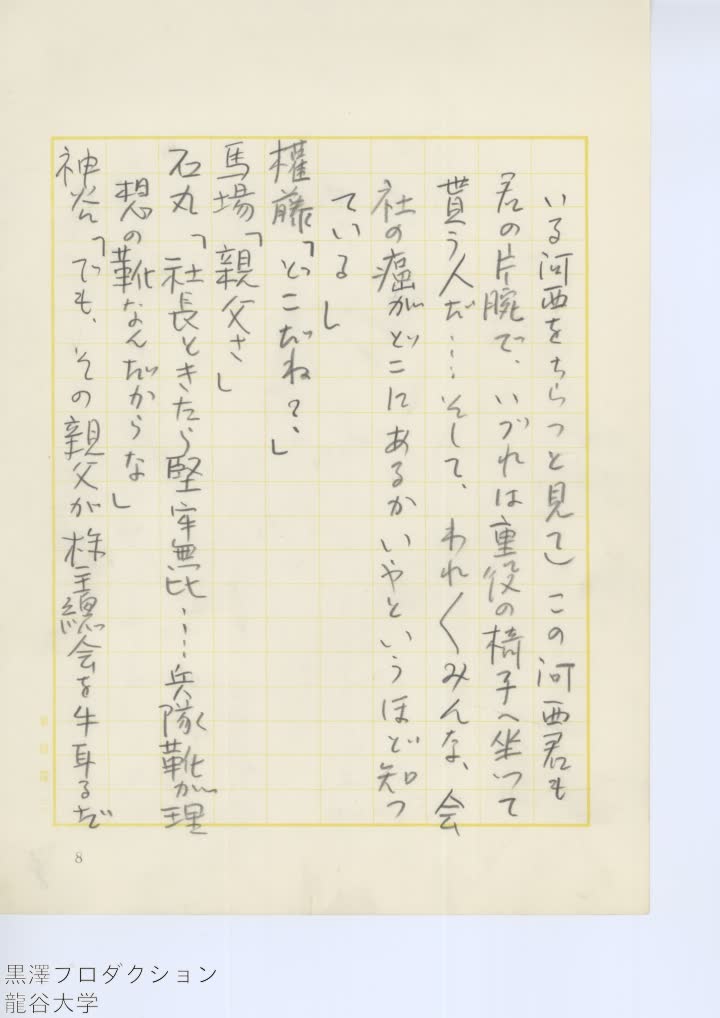 いる河西をちらっと見て）この河西君も
君の片腕で、いづれは重役の椅子へ坐って
貰う人だ……そして、われ〱みんな、会
社の癌がどこにあるかいやというほど知っ
ている」
權藤「どこだね？」
馬場「親父さ」
石丸「社長ときたら堅牢無比……兵隊靴が理
想の靴なんだからな」
神谷「でも、その親父が株主總会を牛耳るだ
8
黒澤プロダクション
龍谷大学